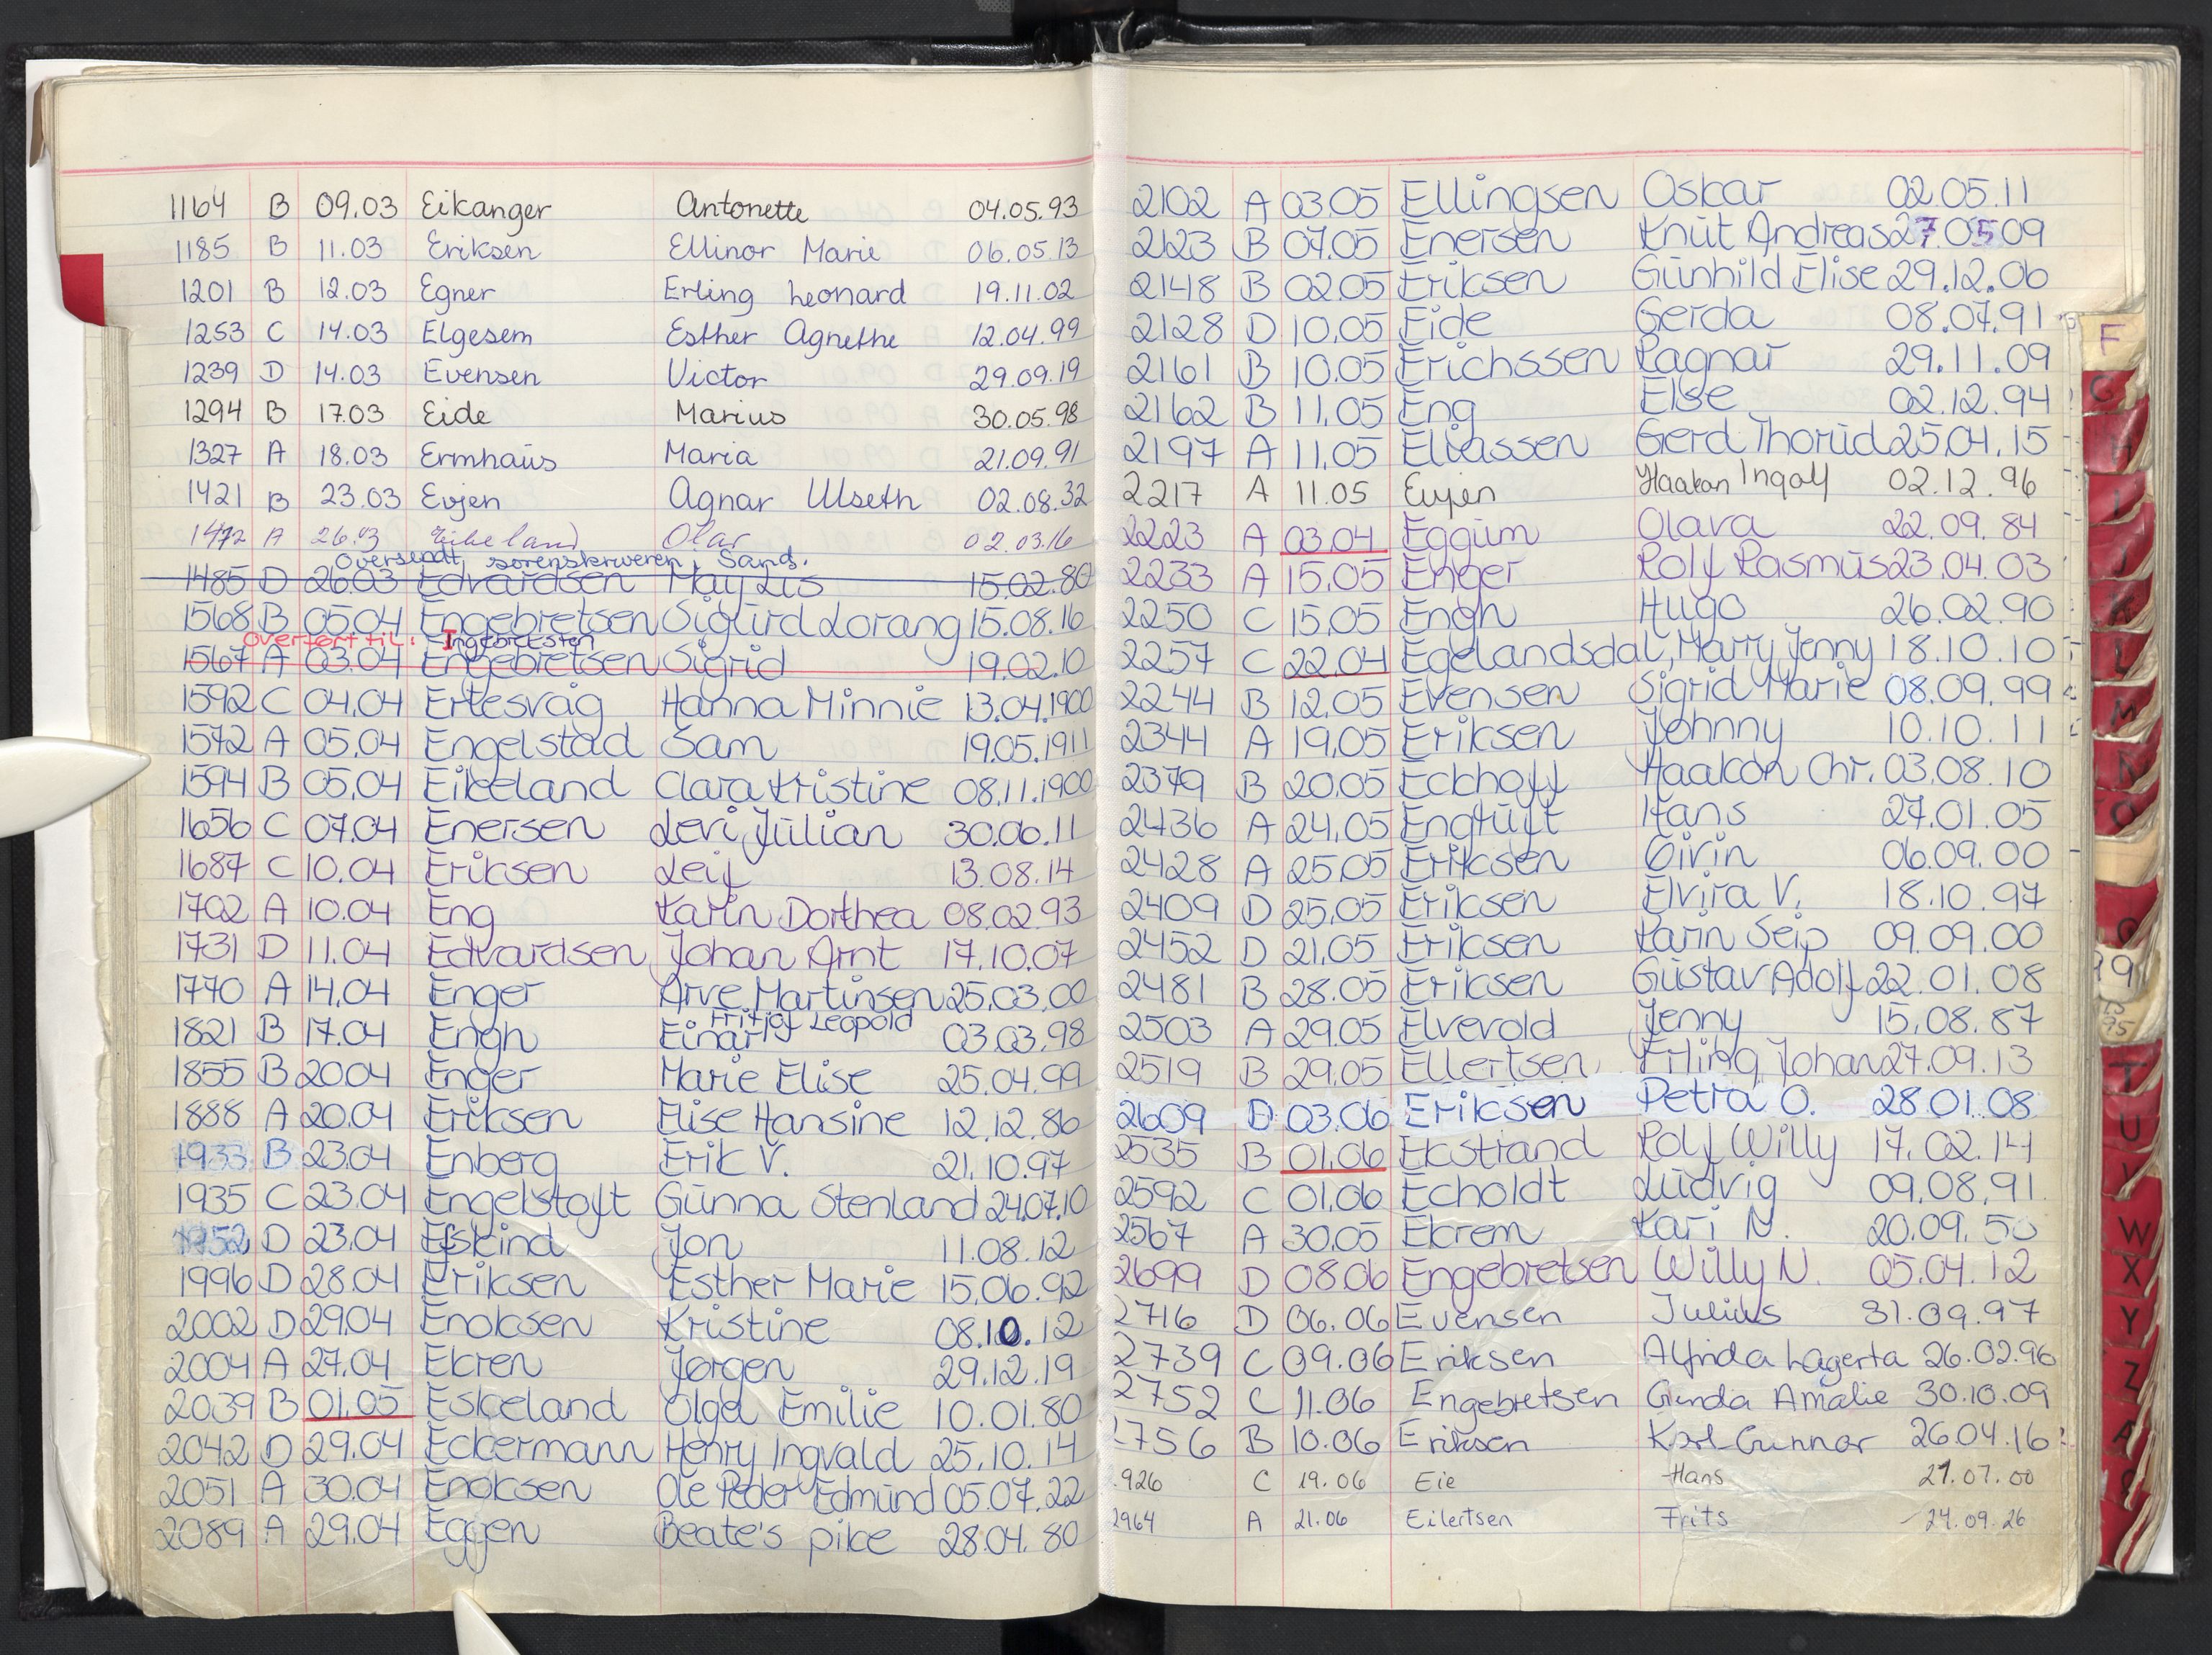 1164 B 09.03 Eikanger Antonette 04.05.93
1185 B 11.03 Eriksen Ellinor Marie 06.05.13
1201 B 12.03 Egner Erling Leonard 19.11.02
1253 C 14.03 Elgesem Esther Agnethe 12.04.99
1239 D 14.03 Evensen Victor 29.09.19
1294 B 17.03 Eide Marius 30.05.98
1327 A 18.03 Ermhaüs Maria 21.09.91
1421 B 23.03 Evjen Agnar Ulseth 02.08.32
1472 A 26.03 Eikeland Olav 02.03.16
Oversendt sorenskriveren, Sand.
1485 D 26.03 Edvardsen May Lis 15.02.80
1568 B 05.04 Engebretsen Sigürd Lorang 15.08.16
overført til: Ingebretsten
1567 A 03.04 Engebretsen Sigrid 19.02.10
1592 C 04.04 Ertesvåg Hanna Minnie 13.04.1900
1572 A 05.04 Engelstad Sam 19.05.1911
1594 B 05.04 Eikeland Clara Kristine 08.11.1900
1656 C 07.04 Enersen Levi Jülian 30.06.11
1687 C 10.04 Eriksen Leif 13.08.14
1702 A 10.04 Eng Karin Dorthea 08.02.93
1731 D 11.04 Edvardsen Johan Arnt 17.10.07
1770 A 14.04 Enger Arve Martinsen 25.03.00
1821 B 17.04 Engh Einar Fritjof Leopold 03.03.98
1855 B 20.04 Enger Marie Elise 25.04.99
1888 A 20.04 Eriksen Elise Hansine 12.12.86
1933 B 23.04 Enberg Erik V. 21.10.97
1935 C 23.04 Engelstoft Günna Stenland 24.07.10
1952 D 23.04 Efskind Jon 11.08.12
1996 D 28.04 Eriksen Esther Marie 15.06.92
2002 D 29.04 Enoksen Kristine 08.10.12
2004 A 27.04 Ekren Jørgen 29.12.19
2039 B 01.05 Eskeland Olga Emilie 10.01.80
2042 D 29.04 Eckermann Henry Ingvald 25.10.14
2051 A 30.04 Enoksen Ole Peder Edmünd 05.07.22
2089 A 29.04 Eggen Beate's pike 28.04.80
2102 A 03.05 Ellingsen Oskar 02.05.11
2123 B 07.05 Enersen Knüt Andreas 27.05.09
2148 B 02.05 Eriksen Günhild Elise 29.12.06
2128 D 10.05 Eide Gerda 08.07.91
2161 B 10.05 Erichssen Ragnar 29.11.09
2162 B 11.05 Eng Else 02.12.94
2197 A 11.05 Eliassen Gerd Thorüd 25.04.15
2217 A 11.05 Evjen Haakon Ingolf 02.12.96
2223 A 03.04 Eggüm Olava 22.09.84
2233 A 15.05 Enger Rolf Rasmüs 23.04.03
2250 C 15.05 Engh Hugo 26.02.90
2257 C 22.04 Egelandsdal, Marry Jenny 18.10.10
2244 B 12.05 Evensen Sigrid Marie 08.09.99
2344 A 19.05 Eriksen Johnny 10.10.11
2379 B 20.05 Eckhoff Haakon Chr. 03.08.10
2436 A 24.05 Engtüft Hans 27.01.05
2428 A 25.05 Eriksen Eivin 06.09.00
2409 D 25.05 Eriksen Elvira V. 18.10.97
2452 D 21.05 Eriksen Karin Seip 09.09.00
2481 B 28.05 Eriksen Güstav Adolf 22.01.08
2503 A 29.05 Elvevold Jenny 15.08.87
2519 B 29.05 Ellertsen Erling Johan 27.09.13
2609 D 03.06 Eriksen Petra O. 28.01.08
2535 B 01.06 Ekstrand Rolf Willy 17.02.14
2592 C 01.06 Echoldt Lüdvig 09.08.91
2567 A 30.05 Ekrem Kari N. 20.09.50
2699 D 08.06 Engebretsen Willy N. 05.04.12
2716 D 06.06 Evensen Julius 31.09.97
2739 C 09.06 Eriksen Alfrida Lagerta 26.02.96
2752 C 11.06 Engebretsen Gunda Amalie 30.10.09
2756 B 10.06 Eriksen Karl-Gunnar 26.04.16
926 C 19.06 Eie Hans 27.07.00
2964 A 21.06 Eilertsen Frits 24.09.26
F
G
H
I
J
K
L
M
N
O
T
U
V
W
X
Y
Z